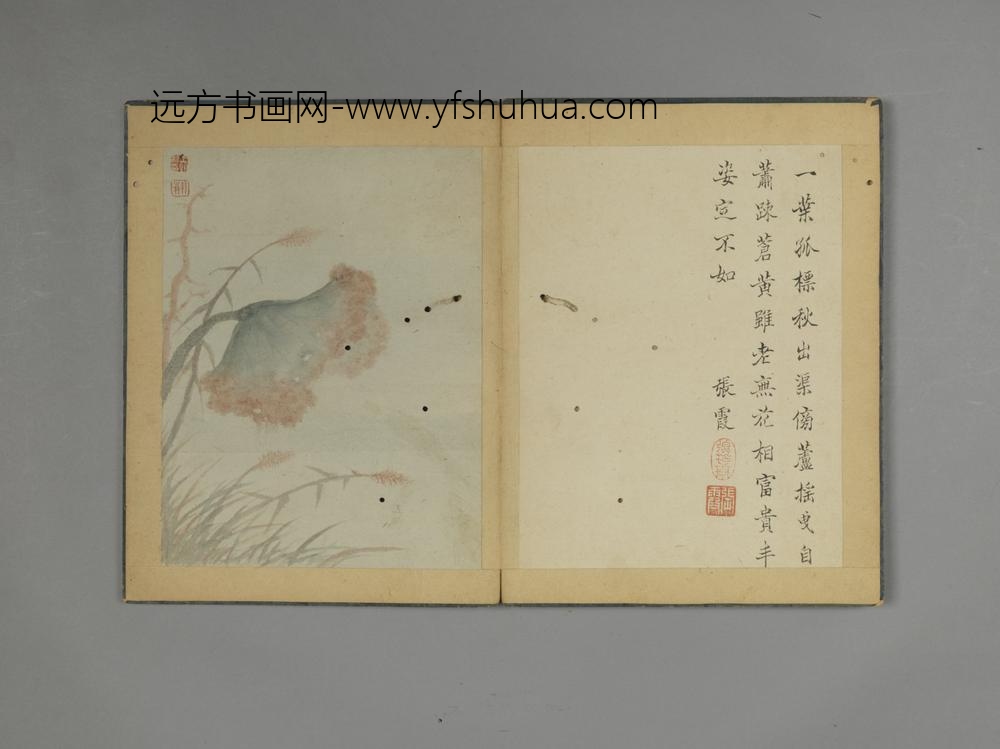 远方书画网-www.yfshuhua.com
一葉孤標秋出渠傍蘆搖曳自
蕭踈蒼黄雖老無花相富貴丰
姿定不如
張霞